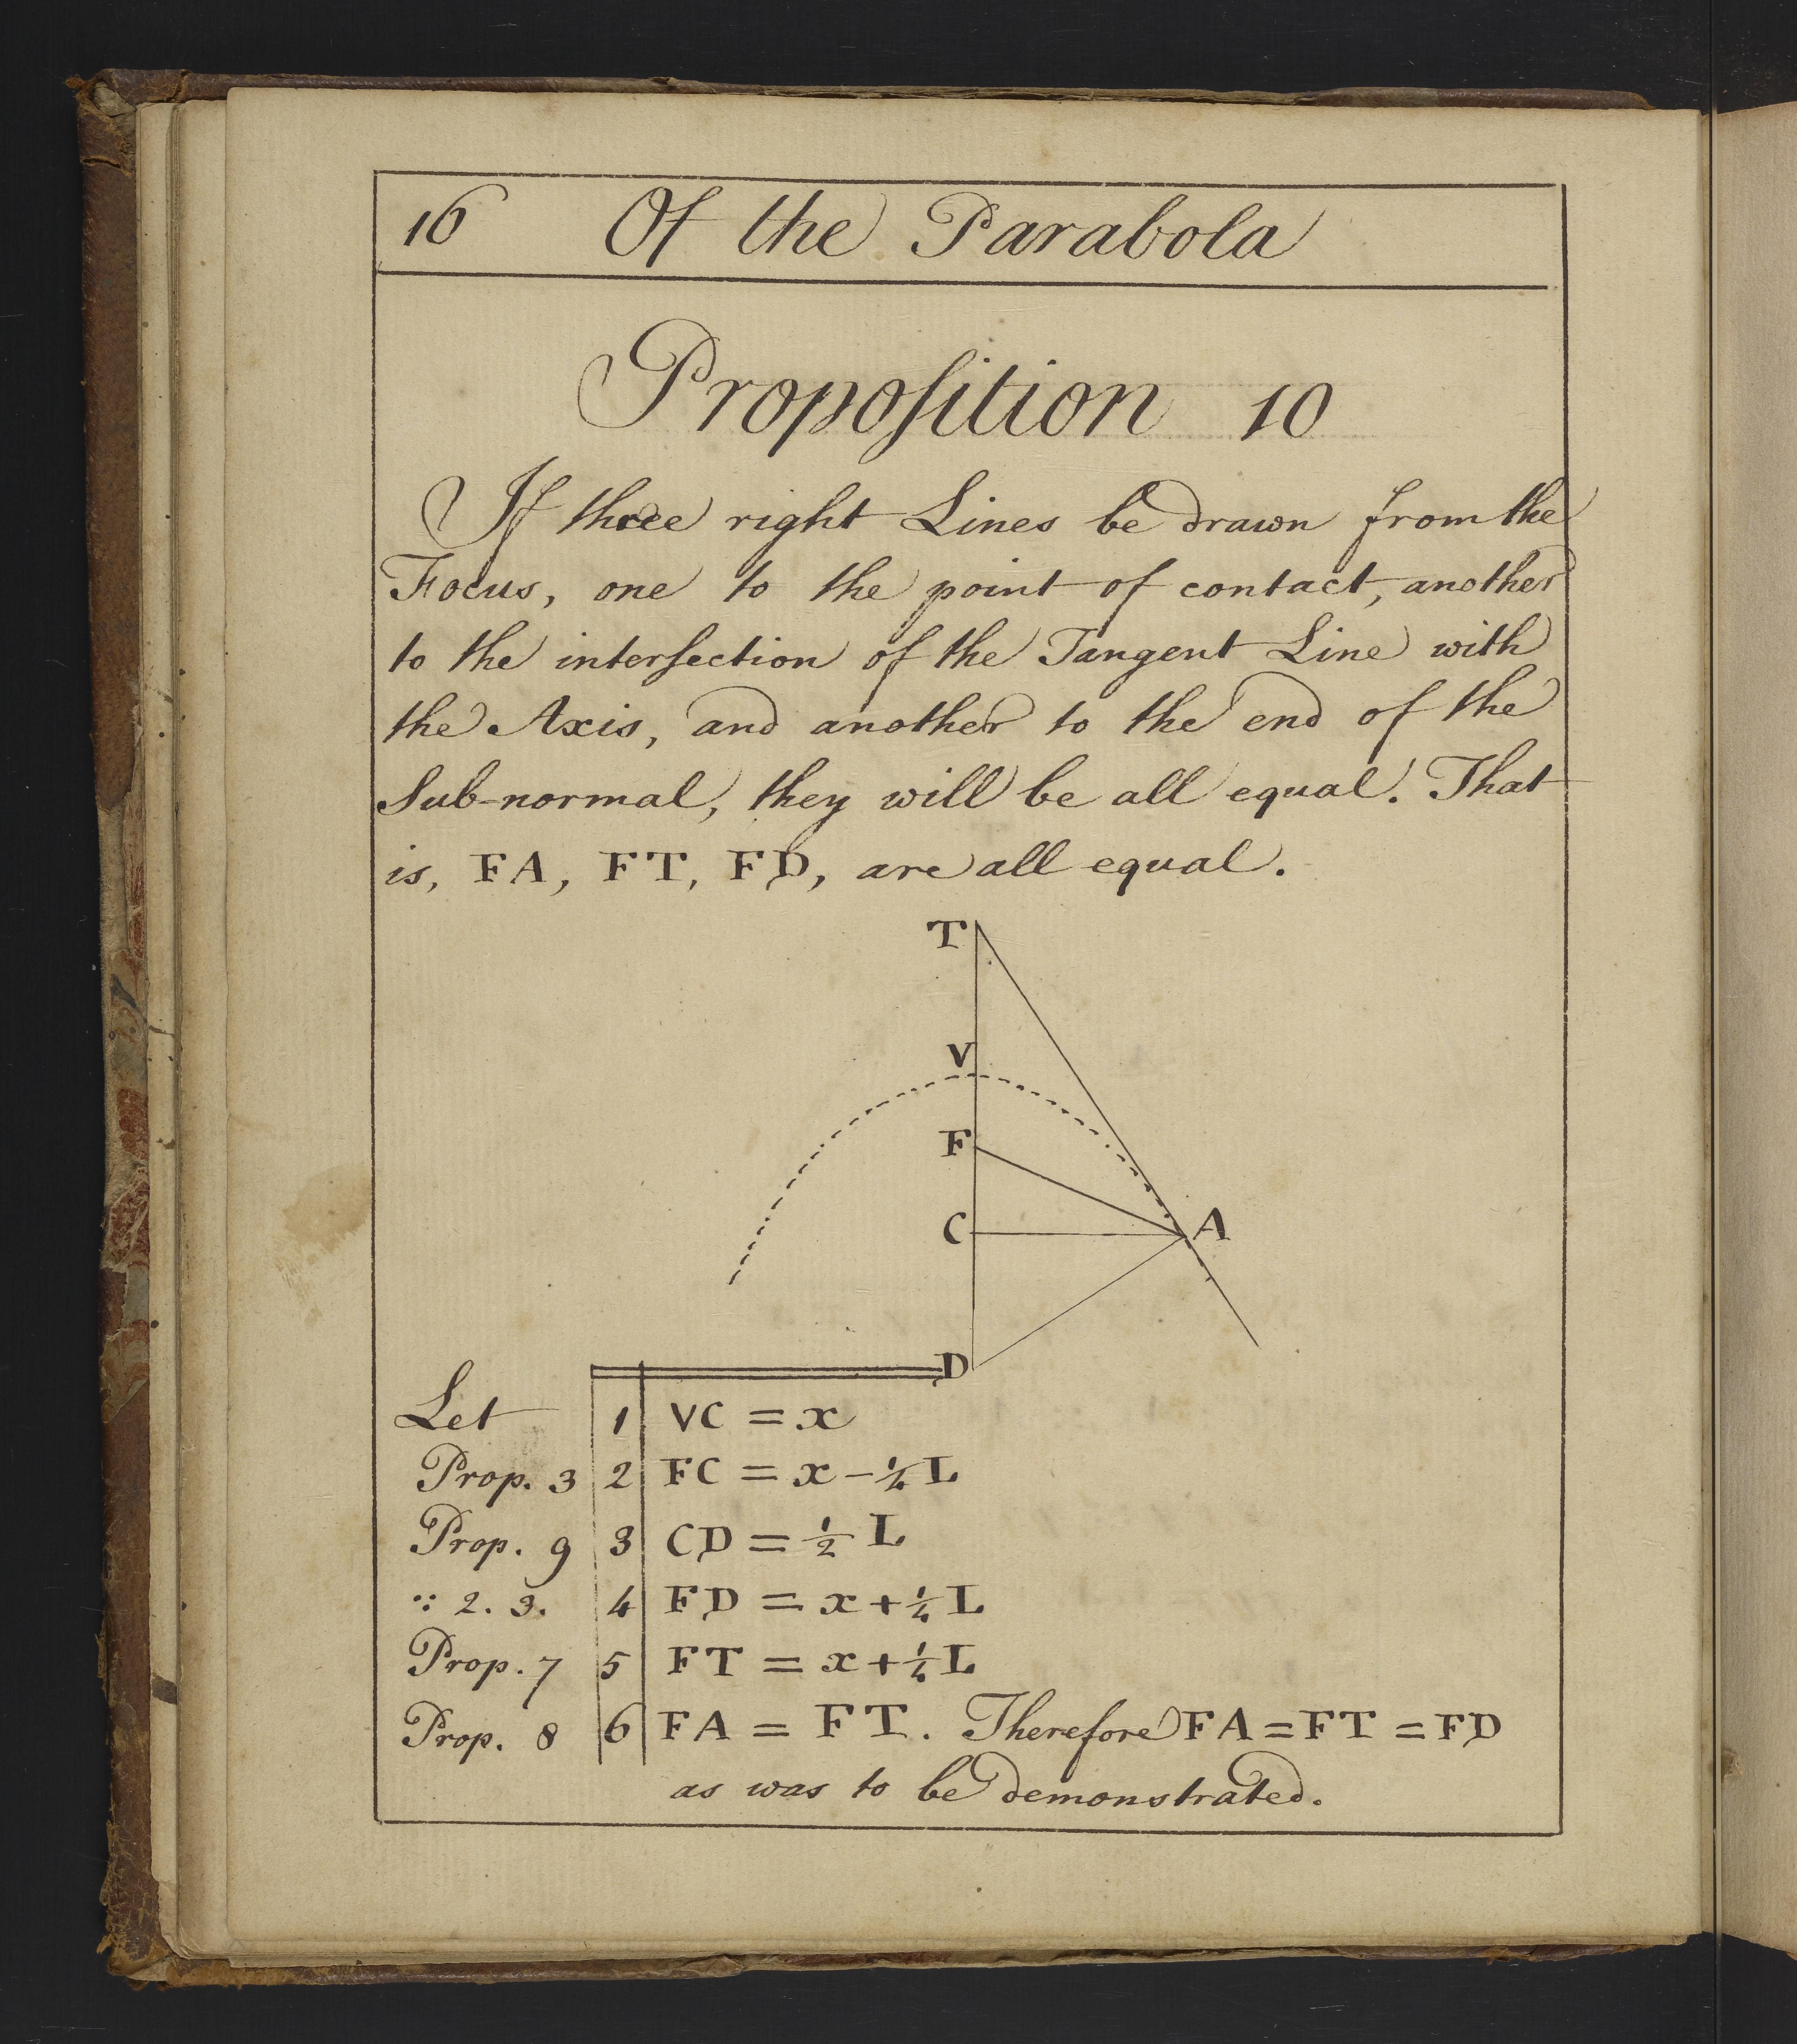 16 Of the Parabola
Propoſition 10
If three right Lines be drawn from the
Focus, one to the point of contact, another
to the interſection of the Tangent Line with
the Axis, and another to the end of the
Sub-normal, they will be all equal. That
is, FA, FT, FD, are all equal.
T
V
F
C A
D
Let 1 VC = x
Prop. 3 2 FC = x - ¼ L
Prop. 9 3 CD = ½ L
∵ 2. 3. 4 FD = x + ¼ L
Prop. 7 5 FT = x + ¼ L
Prop. 8 6 FA = FT. Therefore FA = FT = FD
as was to be demonstrated.